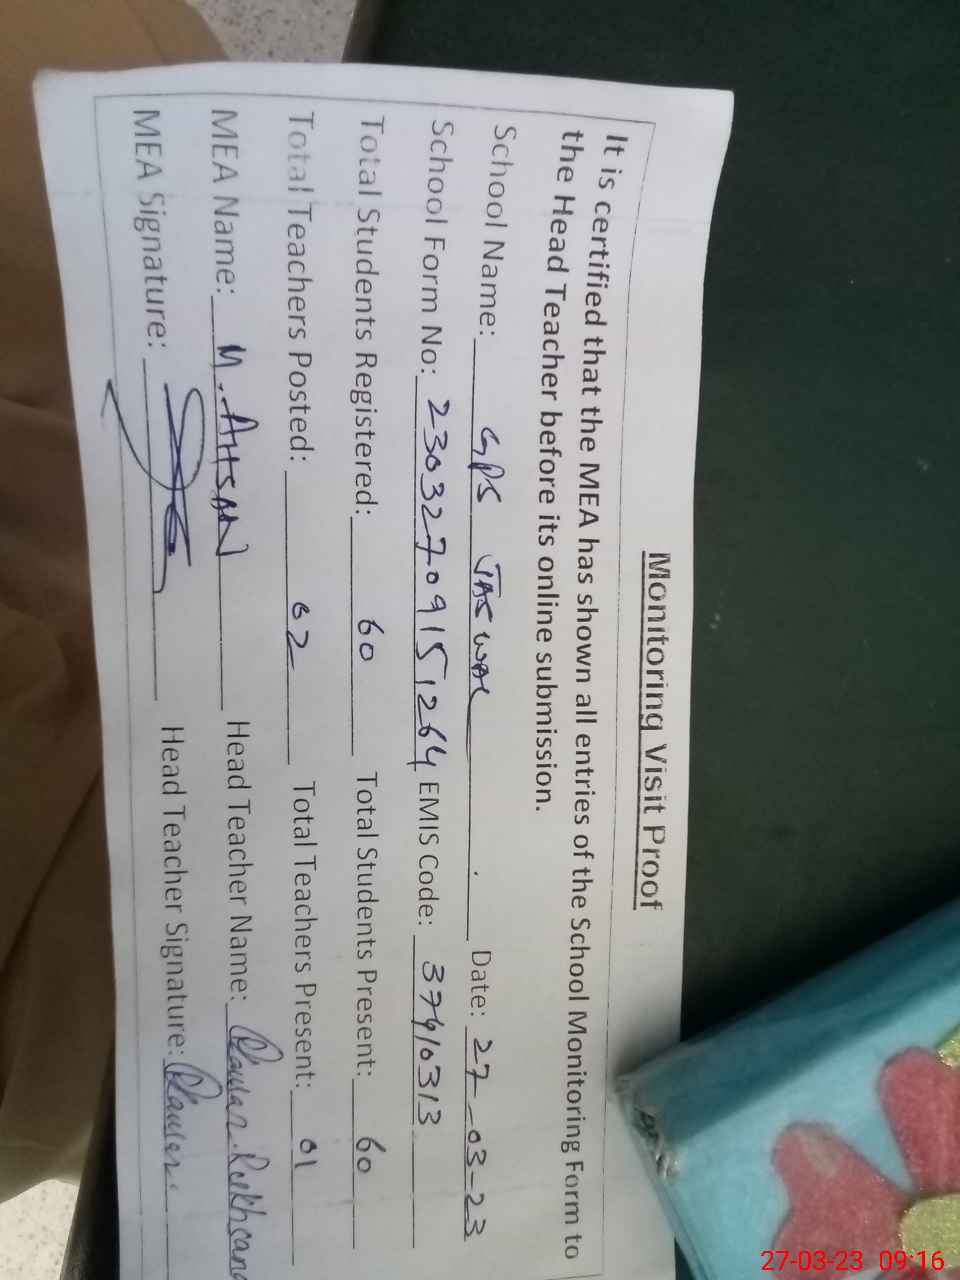 Monitoring Visit Proof
It is certified that the MEA has shown all entries of the School Monitoring Form to
the Head Teacher before its online submission.
School Name: GPS JASWAL Date: 27-03-23
School Form No: 23032709151264 EMIS Code: 37410313
Total Students Registered: 60 Total Students Present: 60
Total Teachers Posted: 02 Total Teachers Present: 01
MEA Name: M. AHSAN Head Teacher Name:
MEA Signature: Head Teacher Signature:
27-03-23 09:16